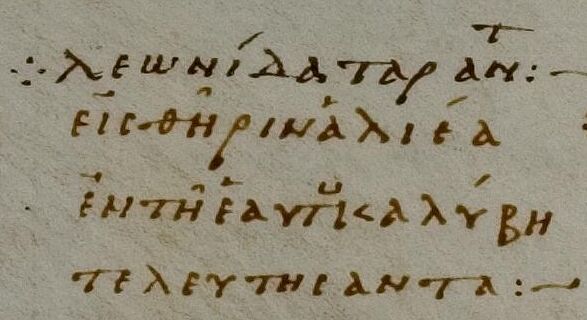 ⁘ λεωνίδα ταρανͭ :—
εἰς θῆριν ἁλιέα
ἐν τῆ ἑαυτοῦ καλύβη
τελευτησαντα :—